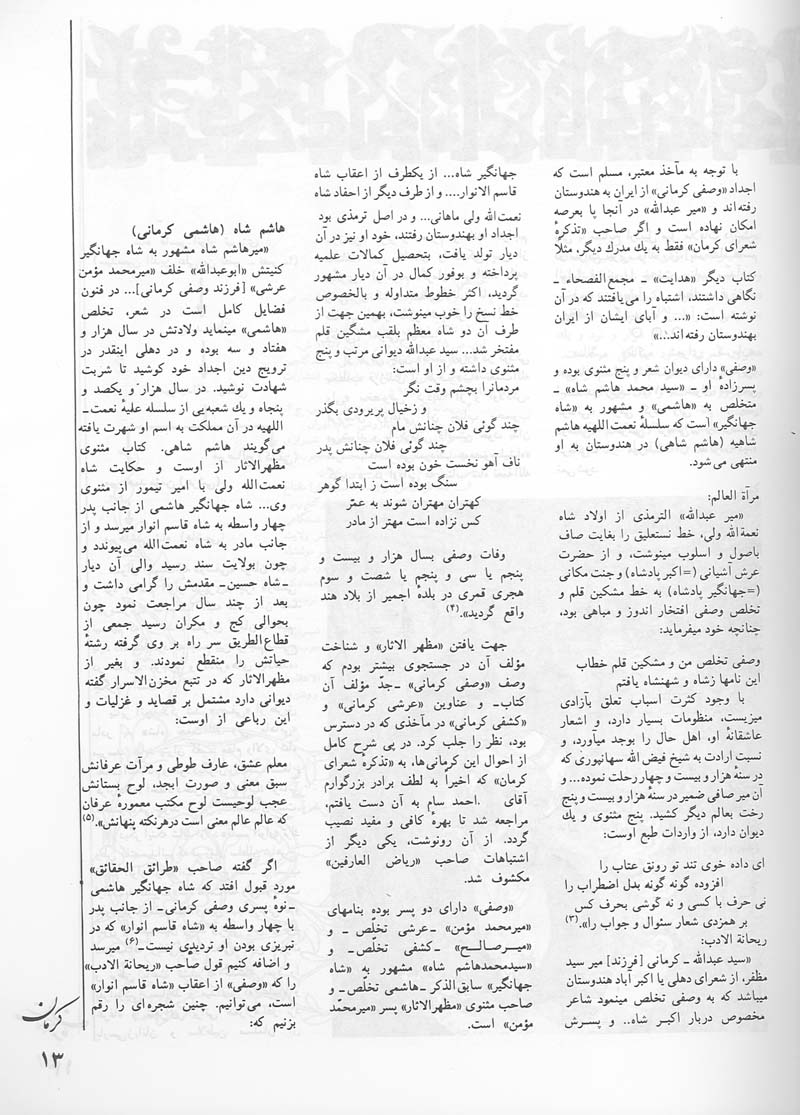 با توجه به مآخذ معتبر، مسلم است که
اجداد «وصفی کرمانی» از ایران به هندوستان
رفته‌اند و «میر عبدالله» در آنجا پا بعرصه
امکان نهاده است و اگر صاحب «تذکرهٔ
شعرای کرمان» فقط به یك مدرك دیگر، مثلاً
کتاب دیگر «هدایت» ـ مجمع‌الفصحاء ـ
نگاهی داشتند، اشتباه را می‌یافتند که در آن
نوشته است: «... و آبای ایشان از ایران
بهندوستان رفته‌اند...»
«وصفی» دارای دیوان شعر و پنج مثنوی بوده و
پسرزادهٔ او ـ «سید محمد هاشم شاه» ـ
متخلص به «هاشمی» و مشهور به «شاه
جهانگیر» است که سلسلهٔ نعمت اللهیه هاشم
شاهیه (هاشم شاهی) در هندوستان به او
منتهی می‌شود.
مرآة العالم:
«میر عبدالله» الترمذی از اولاد شاه
نعمةالله ولی، خط نستعلیق را بغایت صاف
باصول و اسلوب مینوشت، و از حضرت
عرش آشیانی (=اکبر پادشاه) و جنت مکانی
(=جهانگیر پادشاه) به خط مشکین قلم و
تخلص وصفی افتخار اندوز و مباهی بود،
چنانچه خود میفرماید:
وصفی تخلص من و مشکین قلم خطاب
این نامها زشاه و شهنشاه یافتم
با وجود کثرت اسباب تعلق بآزادی
میزیست، منظومات بسیار دارد، و اشعار
عاشقانهٔ او، اهل حال را بوجد میآورد، و
نسبت ارادت به شیخ فیض الله سهانپوری که
در سنهٔ هزار و بیست و چهار رحلت نموده... و
آن میر صافی ضمیر در سنهٔ هزار و بیست و پنج
رخت بعالم دیگر کشید. پنج مثنوی و یك
دیوان دارد، از واردات طبع اوست:
ای داده خوی تند تو رونق عتاب را
افزوده گونه گونه بدل اضطراب را
نی حرف با کسی و نه گوشی بحرف کس
بر همزدی شعار سئوال و جواب را».(۳)
ریحانة الادب:
«سید عبدالله ـ کرمانی [فرزند] میر سید
مظفر، از شعرای دهلی یا اکبر آباد هندوستان
میباشد که به وصفی تخلص مینمود شاعر
مخصوص دربار اکبر شاه.. و پسرش
جهانگیر شاه... از یکطرف از اعقاب شاه
قاسم الانوار.... و از طرف دیگر از احفاد شاه
نعمت‌الله ولی ماهانی... و در اصل ترمذی بود
اجداد او بهندوستان رفتند، خود او نیز در آن
دیار تولد یافت، بتحصیل کمالات علمیه
پرداخته و بوفور کمال در آن دیار مشهور
گردید، اکثر خطوط متداوله و بالخصوص
خط نسخ را خوب مینوشت، بهمین جهت از
طرف آن دو شاه معظم بلقب مشگین قلم
مفتخر شد... سید عبدالله دیوانی مرتب و پنج
مثنوی داشته و از او است:
مردمانرا بچشم وقت نگر
و زخیال پریرودی بگذر
چند گوئی فلان چنانش مام
چند گوئی فلان چنانش پدر
ناف آهو نخست خون بوده است
سنگ بوده است ز ابتدا گوهر
کهتران مهتران شوند به عمر
کس نزاده است مهتر از مادر
وفات وصفی بسال هزار و بیست و
پنجم یا سی و پنجم یا شصت و سوم
هجری قمری در بلدهٔ اجمیر از بلاد هند
واقع گردید».(۴)
جهت یافتن «مظهر الاثار» و شناخت
مؤلف آن در جستجوی بیشتر بودم که
وصف «وصفی کرمانی» ـ جدّ مؤلف آن
کتاب‌ـ و عناوین «عرشی کرمانی» و
«کشفی کرمانی» در مآخذی که در دسترس
بود، نظر را جلب کرد. در پی شرح کامل
از احوال این کرمانی‌ها، به «تذکرهٔ شعرای
کرمان» که اخیراً به لطف برادر بزرگوارم
آقای احمد سام به آن دست یافتم،
مراجعه شد تا بهرهٔ کافی و مفید نصیب
گردد. از آن رونوشت، یکی دیگر از
اشتباهات صاحب «ریاض العارفین»
مکشوف شد.
«وصفی» دارای دو پسر بوده بنامهای
«میرمحمد مؤمن» ـ عرشی تخلّص ـ و
«میرصالح» ـ کشفی تخلّص ـ و
«سیدمحمدهاشم شاه» مشهور به «شاه
جهانگیر» سابق‌الذکر ـ هاشمی تخلّص ـ و
صاحب مثنوی «مظهرالاثار» پسر «میرمحمّد
مؤمن» است.
هاشم شاه (هاشمی کرمانی)
«میرهاشم شاه مشهور به شاه جهانگیر
کنیتش «ابوعبدالله» خلف «میرمحمد مؤمن
عرشی» [فرزند وصفی کرمانی]... در فنون
فضایل کامل است در شعر، تخلص
«هاشمی» مینماید ولادتش در سال هزار و
هفتاد و سه بوده و در دهلی اینقدر در
ترویج دین اجداد خود کوشید تا شربت
شهادت نوشید. در سال هزار و یکصد و
پنجاه و یك شعبه‌یی از سلسله علیهٔ نعمت‌ـ
اللهیه در آن مملکت به اسم او شهرت یافته
می‌گویند هاشم شاهی. کتاب مثنوی
مظهرالاثار از اوست و حکایت شاه
نعمت‌الله ولی با امیر تیمور از مثنوی
وی... شاه جهانگیر هاشمی از جانب پدر
چهار واسطه به شاه قاسم انوار میرسد و از
جانب مادر به شاه نعمت‌الله می‌پیوندد و
چون بولایت سند رسید والی آن دیار
ـ شاه حسین‌ـ مقدمش را گرامی داشت و
بعد از چند سال مراجعت نمود چون
بحوالی کج و مکران رسید جمعی از
قطاع‌الطریق سر راه بر وی گرفته رشتهٔ
حیاتش را منقطع نمودند. و بغیر از
مظهرالاثار که در تتبع مخزن‌الاسرار گفته
دیوانی دارد مشتمل بر قصاید و غزلیات و
این رباعی از اوست:
معلم عشق، عارف طوطی و مرآت عرفانش
سبق معنی و صورت ابجد، لوح پستانش
عجب لوحیست لوح مکتب معمورهٔ عرفان
که عالم عالم معنی است درهرنکته پنهانش».(۵)
اگر گفته صاحب «طرائق الحقائق»
مورد قبول افتد که شاه جهانگیر هاشمی
ـ نوهٔ پسری وصفی کرمانی‌ـ از جانب پدر
با چهار واسطه به «شاه قاسم انوار» که در
تبریزی بودن او تردیدی نیست‌ـ(۶) میرسد
و اضافه کنیم قول صاحب «ریحانة الادب»
را که «وصفی» از اعقاب «شاه قاسم انوار»
است، می‌توانیم. چنین شجره‌ای را رقم
بزنیم که:
کرمان
۱۳